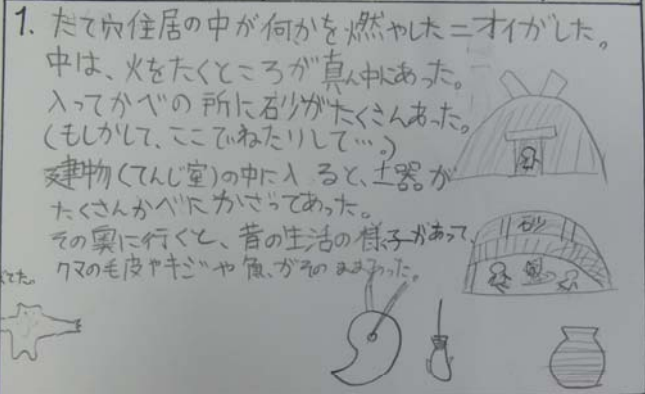 1. たて穴住居の中が何かを燃やしたニオイがした。
中は、火をたくところが真ん中にあった。
入ってかべの所に砂がたくさんあった。
(もしかして、ここでねたりして…。)
建物(てんじ室)の中に入ると、土器が
たくさんかべにかざってあった。
その奥に行くと、昔の生活の様子があって、
クマの毛皮やキジや魚、がそのままあった。
てた。
砂